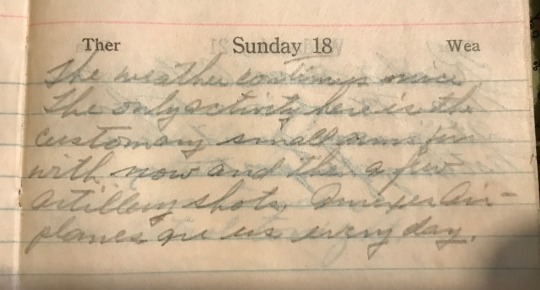 Ther Sunday 18 Wea
The weather continues nice
The only activity here is the
customary small arms fire
with now and then a few
artillery shots.
planes every day.